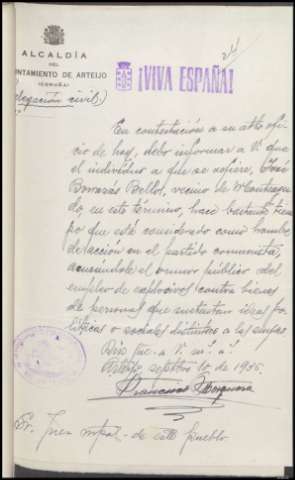 24
ALCALDÍA
DEL
NTAMIENTO DE ARTEIJO
(CORUÑA)
¡VIVA ESPAÑA!
elegación civil.)
En contestación a su atto ofi-
cio de hoy, debo informar a V. que
el individuo a que se refiere, José
Borrazás Bello, vecino de
do, en este término, hace bastante tiem-
po que está considerado como hombre
de acción en el partido comunista,
acusándole el rumor público del
empleo de explosivos contra bienes
de personas que sustentan ideas po-
líticas o sociales distintas a las suyas
Dios gue. a V. m. a.
Arteijo septbre 10 de 1936.
Francisco
Sr. Juez mpal. de este pueblo.